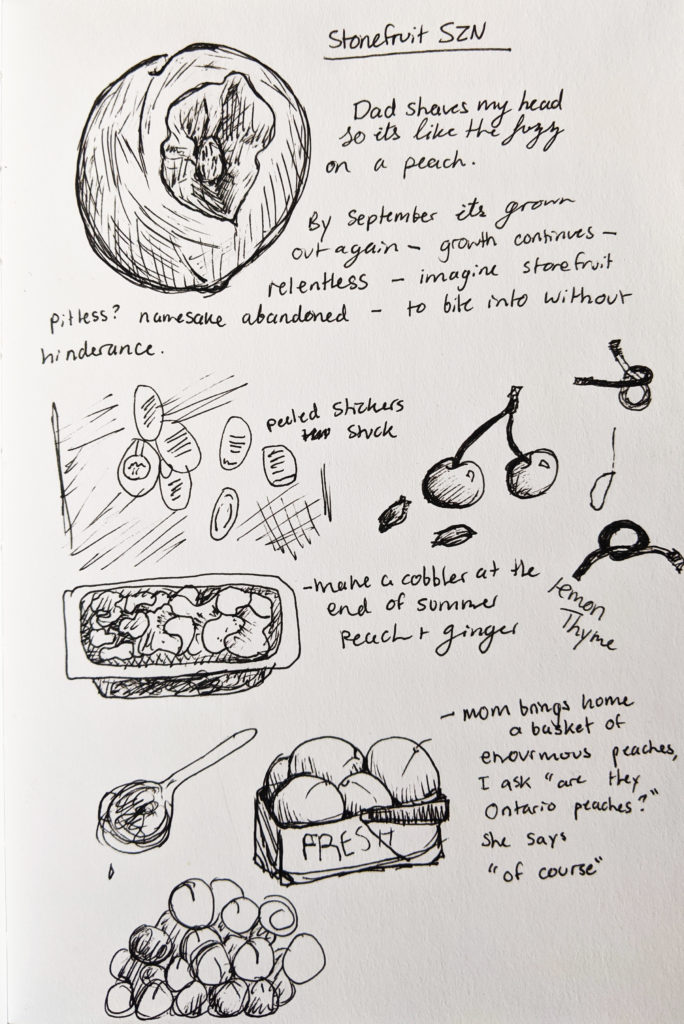 Stonefruit SZN
Dad shaves my head
so its like the fuzzy
on a peach.
By September its grown
out again – growth continues –
relentless – imagine stonefruit
pitless? namesake abandoned – to bite into without
hinderance.
peeled stickers
stuck
– make a cobbler at the
end of summer
Peach + ginger
lemon
Thyme
– mom brings home
a basket of
enourmous peaches,
I ask "are they
Ontario peaches?"
She says
"of course"
FRESH